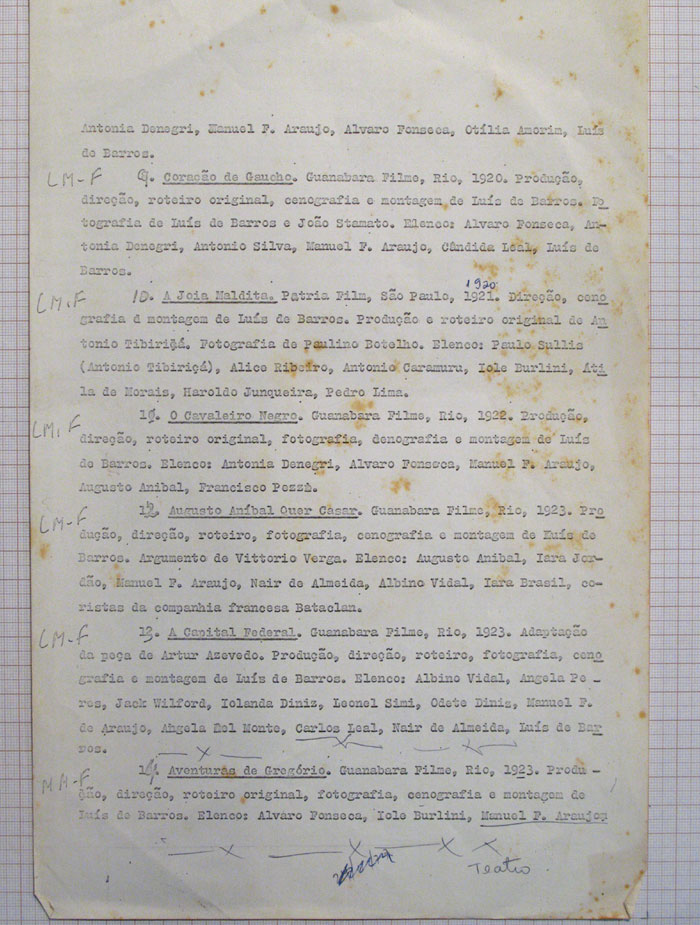 Antonia Denegri, Manuel F. Araujo, Alvaro Fonseca, Otília Amorim, Luís
de Barros.
LM-F 9. Coração de Gaucho. Guanabara Filme, Rio, 1920. Produção,
direção, roteiro original, cenografia e montagem de Luís de Barros. Fo
tografia de Luís de Barros e João Stamato. Elenco: Alvaro Fonseca, An-
tonia Denegri, Antonio Silva, Manuel F. Araujo, Cândida Leal, Luís de
Barros.
1920
LM.F 10. A Joia Maldita. Patria Film, São Paulo, 1921. Direção, ceno
grafia d montagem de Luís de Barros. Produção e roteiro original de An
tonio Tibiriçá. Fotografia de Paulino Botelho. Elenco: Paulo Sullis
(Antonio Tibiriçá), Alice Ribeiro, Antonio Caramuru, Iole Burlini, Áti
la de Morais, Haroldo Junqueira, Pedro Lima.
LM.F 11. O Cavaleiro Negro. Guanabara Filme, Rio, 1922. Produção,
direção, roteiro original, fotografia, denografia e montagem de Luís
de Barros. Elenco: Antonia Denegri, Alvaro Fonseca, Manuel F. Araujo,
Augusto Anibal, Francisco Pezzi.
LM-F 12. Augusto Aníbal Quer Casar. Guanabara Filme, Rio, 1923. Pro
dução, direção, roteiro, fotografia, cenografia e montagem de Luís de
Barros. Argumento de Vittorio Verga. Elenco: Augusto Anibal, Iara Jor-
dão, Manuel F. Araujo, Nair de Almeida, Albino Vidal, Iara Brasil, co-
ristas da companhia francesa Bataclan.
LM-F 13. A Capital Federal. Guanabara Filme, Rio, 1923. Adaptação
da peça de Artur Azevedo. Produção, direção, roteiro, fotografia, ceno
grafia e montagem de Luís de Barros. Elenco: Albino Vidal, Angela Pe-
res, Jack Wilford, Iolanda Diniz, Leonel Simi, Odete Dinis, Manuel F.
de Araujo, Angela Del Monte, Carlos Leal, Nair de Almeida, Luís de Bar
ros.
MA-F 14. Aventuras de Gregório. Guanabara Filme, Rio, 1923. Produ-
ção, direção, roteiro original, fotografia, cenografia e montagem de
Luís de Barros. Elenco: Alvaro Fonseca, Iole Burlini, Manuel F. Araujo,
Teatro